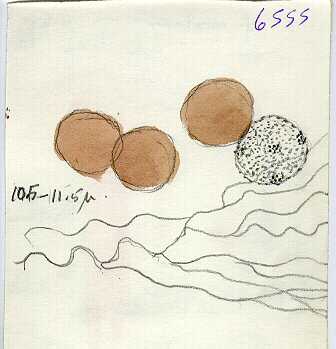 6555
10.5–11.5µ.